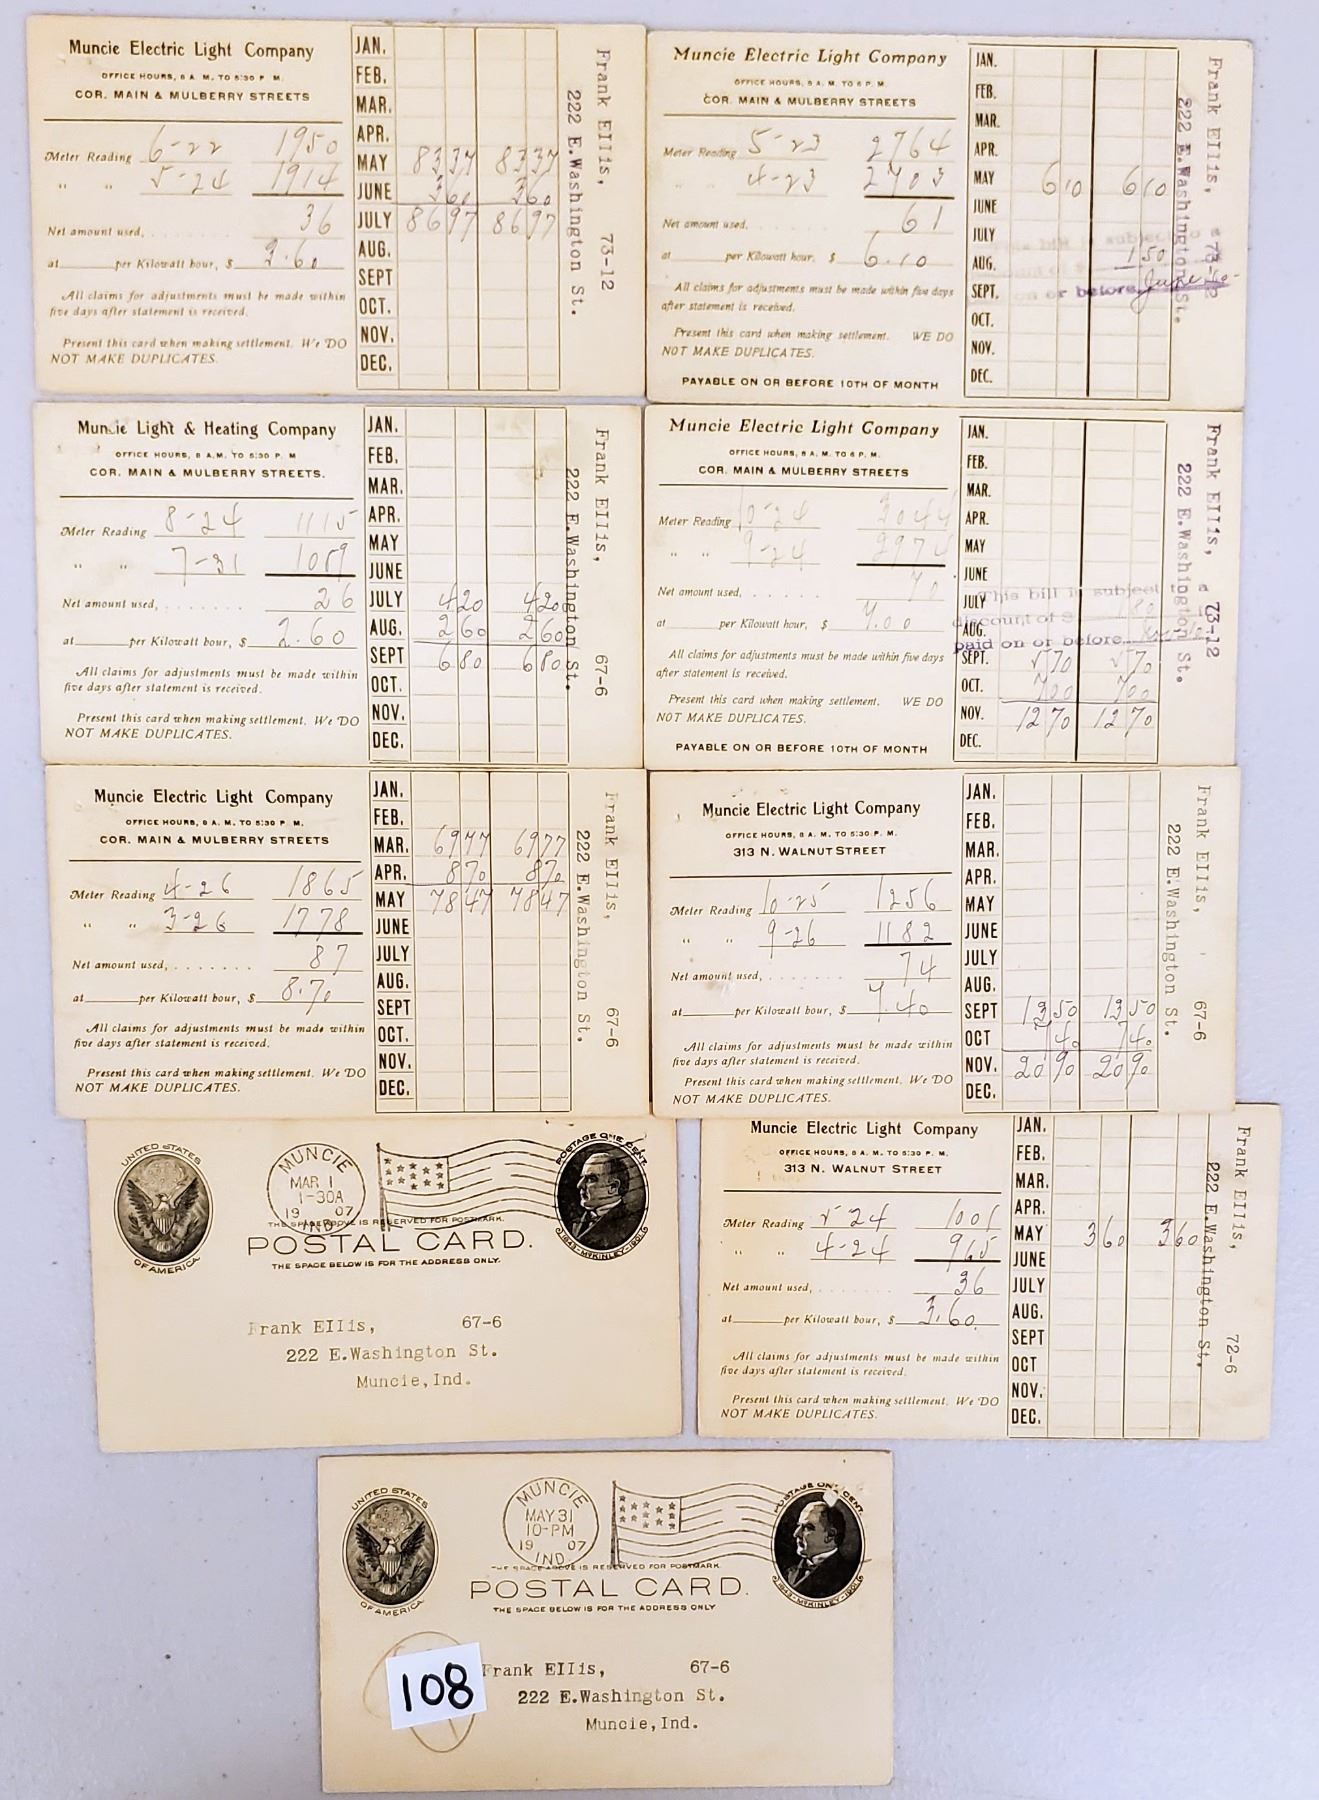 Muncie Electric Light Company
OFFICE HOURS, 8 A. M. TO 5:30 P. M.
COR. MAIN & MULBERRY STREETS
Meter Reading 6-22 1950
" " 5-24 1914
Net amount used, ........ 36
at ____ per Kilowatt hour, $ 3.60
All claims for adjustments must be made within
five days after statement is received.
Present this card when making settlement. We DO
NOT MAKE DUPLICATES.
JAN.
FEB.
MAR.
APR.
MAY 83 37 83 37
JUNE 3 60 3 60
JULY 86 97 86 97
AUG.
SEPT
OCT.
NOV.
DEC.
Frank EIIis, 73-12
222 E.Washington St.
Muncie Electric Light Company
OFFICE HOURS, 8 A. M. TO 6 P. M.
COR. MAIN & MULBERRY STREETS
Meter Reading 5-23 2764
" " 4-23 2703
Net amount used, ........ 61
at ____ per Kilowatt hour, $ 6.10
All claims for adjustments must be made within five days
after statement is received.
Present this card when making settlement. WE DO
NOT MAKE DUPLICATES.
PAYABLE ON OR BEFORE 10TH OF MONTH
JAN.
FEB.
MAR.
APR.
MAY 6 10 6 10
JUNE
JULY
AUG.
SEPT.
OCT.
NOV.
DEC.
bill is subject to a
1 50
on or before June 10
Frank EIIis, 73-12
222 E.Washington St.
Muncie Light & Heating Company
OFFICE HOURS, 8 A.M. TO 5:30 P. M
COR. MAIN & MULBERRY STREETS.
Meter Reading 8-24 1115
" " 7-31 1089
Net amount used, ....... 26
at ____ per Kilowatt hour, $ 2.60
All claims for adjustments must be made within
five days after statement is received.
Present this card when making settlement. We DO
NOT MAKE DUPLICATES.
JAN.
FEB.
MAR.
APR.
MAY
JUNE
JULY 4 20 4 20
AUG. 2 60 2 60
SEPT 6 80 6 80
OCT.
NOV.
DEC.
Frank EIIis, 67-6
222 E.Washington St.
Muncie Electric Light Company
OFFICE HOURS, 8 A. M. TO 6 P. M.
COR. MAIN & MULBERRY STREETS
Meter Reading 10-24 3044
" " 9-24 2974
Net amount used, ...... 70
at ____ per Kilowatt hour, $ 7.00
All claims for adjustments must be made within five days
after statement is received.
Present this card when making settlement. WE DO
NOT MAKE DUPLICATES.
PAYABLE ON OR BEFORE 10TH OF MONTH
JAN.
FEB.
MAR.
APR.
MAY
JUNE
JULY
AUG.
SEPT. 5 70 5 70
OCT. 7 00 7 00
NOV. 12 70 12 70
DEC.
This bill is subject to a
discount of $ 1 80 if
paid on or before
Frank EIIis, 73-12
222 E.Washington St.
Muncie Electric Light Company
OFFICE HOURS, 8 A. M. TO 5:30 P. M.
COR. MAIN & MULBERRY STREETS
Meter Reading 4-26 1865
" " 3-26 1778
Net amount used, ....... 87
at ____ per Kilowatt hour, $ 8.70
All claims for adjustments must be made within
five days after statement is received.
Present this card when making settlement. We DO
NOT MAKE DUPLICATES.
JAN.
FEB.
MAR. 69 77 69 77
APR. 8 70 8 70
MAY 78 47 78 47
JUNE
JULY
AUG.
SEPT
OCT.
NOV.
DEC.
Frank EIIis, 67-6
222 E.Washington St.
Muncie Electric Light Company
OFFICE HOURS, 8 A. M. TO 5:30 P. M.
313 N. WALNUT STREET
Meter Reading 10-25 1256
" " 9-26 1182
Net amount used, ....... 74
at ____ per Kilowatt hour, $ 7.40
All claims for adjustments must be made within
five days after statement is received.
Present this card when making settlement. We DO
NOT MAKE DUPLICATES.
JAN.
FEB.
MAR.
APR.
MAY
JUNE
JULY
AUG.
SEPT 13 50 13 50
OCT 7 40 7 40
NOV. 20 90 20 90
DEC.
Frank EIIis, 67-6
222 E.Washington St.
UNITED STATES
OF AMERICA
MUNCIE
MAR 1
1-30A
19 07
IND
POSTAGE ONE CENT.
1843-McKINLEY-1901
THE SPACE ABOVE IS RESERVED FOR POSTMARK.
POSTAL CARD.
THE SPACE BELOW IS FOR THE ADDRESS ONLY.
Frank EIIis, 67-6
222 E.Washington St.
Muncie,Ind.
Muncie Electric Light Company
OFFICE HOURS, 8 A. M. TO 5:30 P. M.
313 N. WALNUT STREET
Meter Reading 5-24 1001
" " 4-24 965
Net amount used, ........ 36
at ____ per Kilowatt hour, $ 3.60
All claims for adjustments must be made within
five days after statement is received.
Present this card when making settlement. We DO
NOT MAKE DUPLICATES.
JAN.
FEB.
MAR.
APR.
MAY 3 60 3 60
JUNE
JULY
AUG.
SEPT
OCT
NOV.
DEC.
Frank EIIis, 72-6
222 E.Washington St.
UNITED STATES
OF AMERICA
MUNCIE
MAY 31
10-PM
19 07
IND.
POSTAGE ONE CENT.
1843-McKINLEY-1901
THE SPACE ABOVE IS RESERVED FOR POSTMARK
POSTAL CARD.
THE SPACE BELOW IS FOR THE ADDRESS ONLY
108
Frank EIIis, 67-6
222 E.Washington St.
Muncie,Ind.